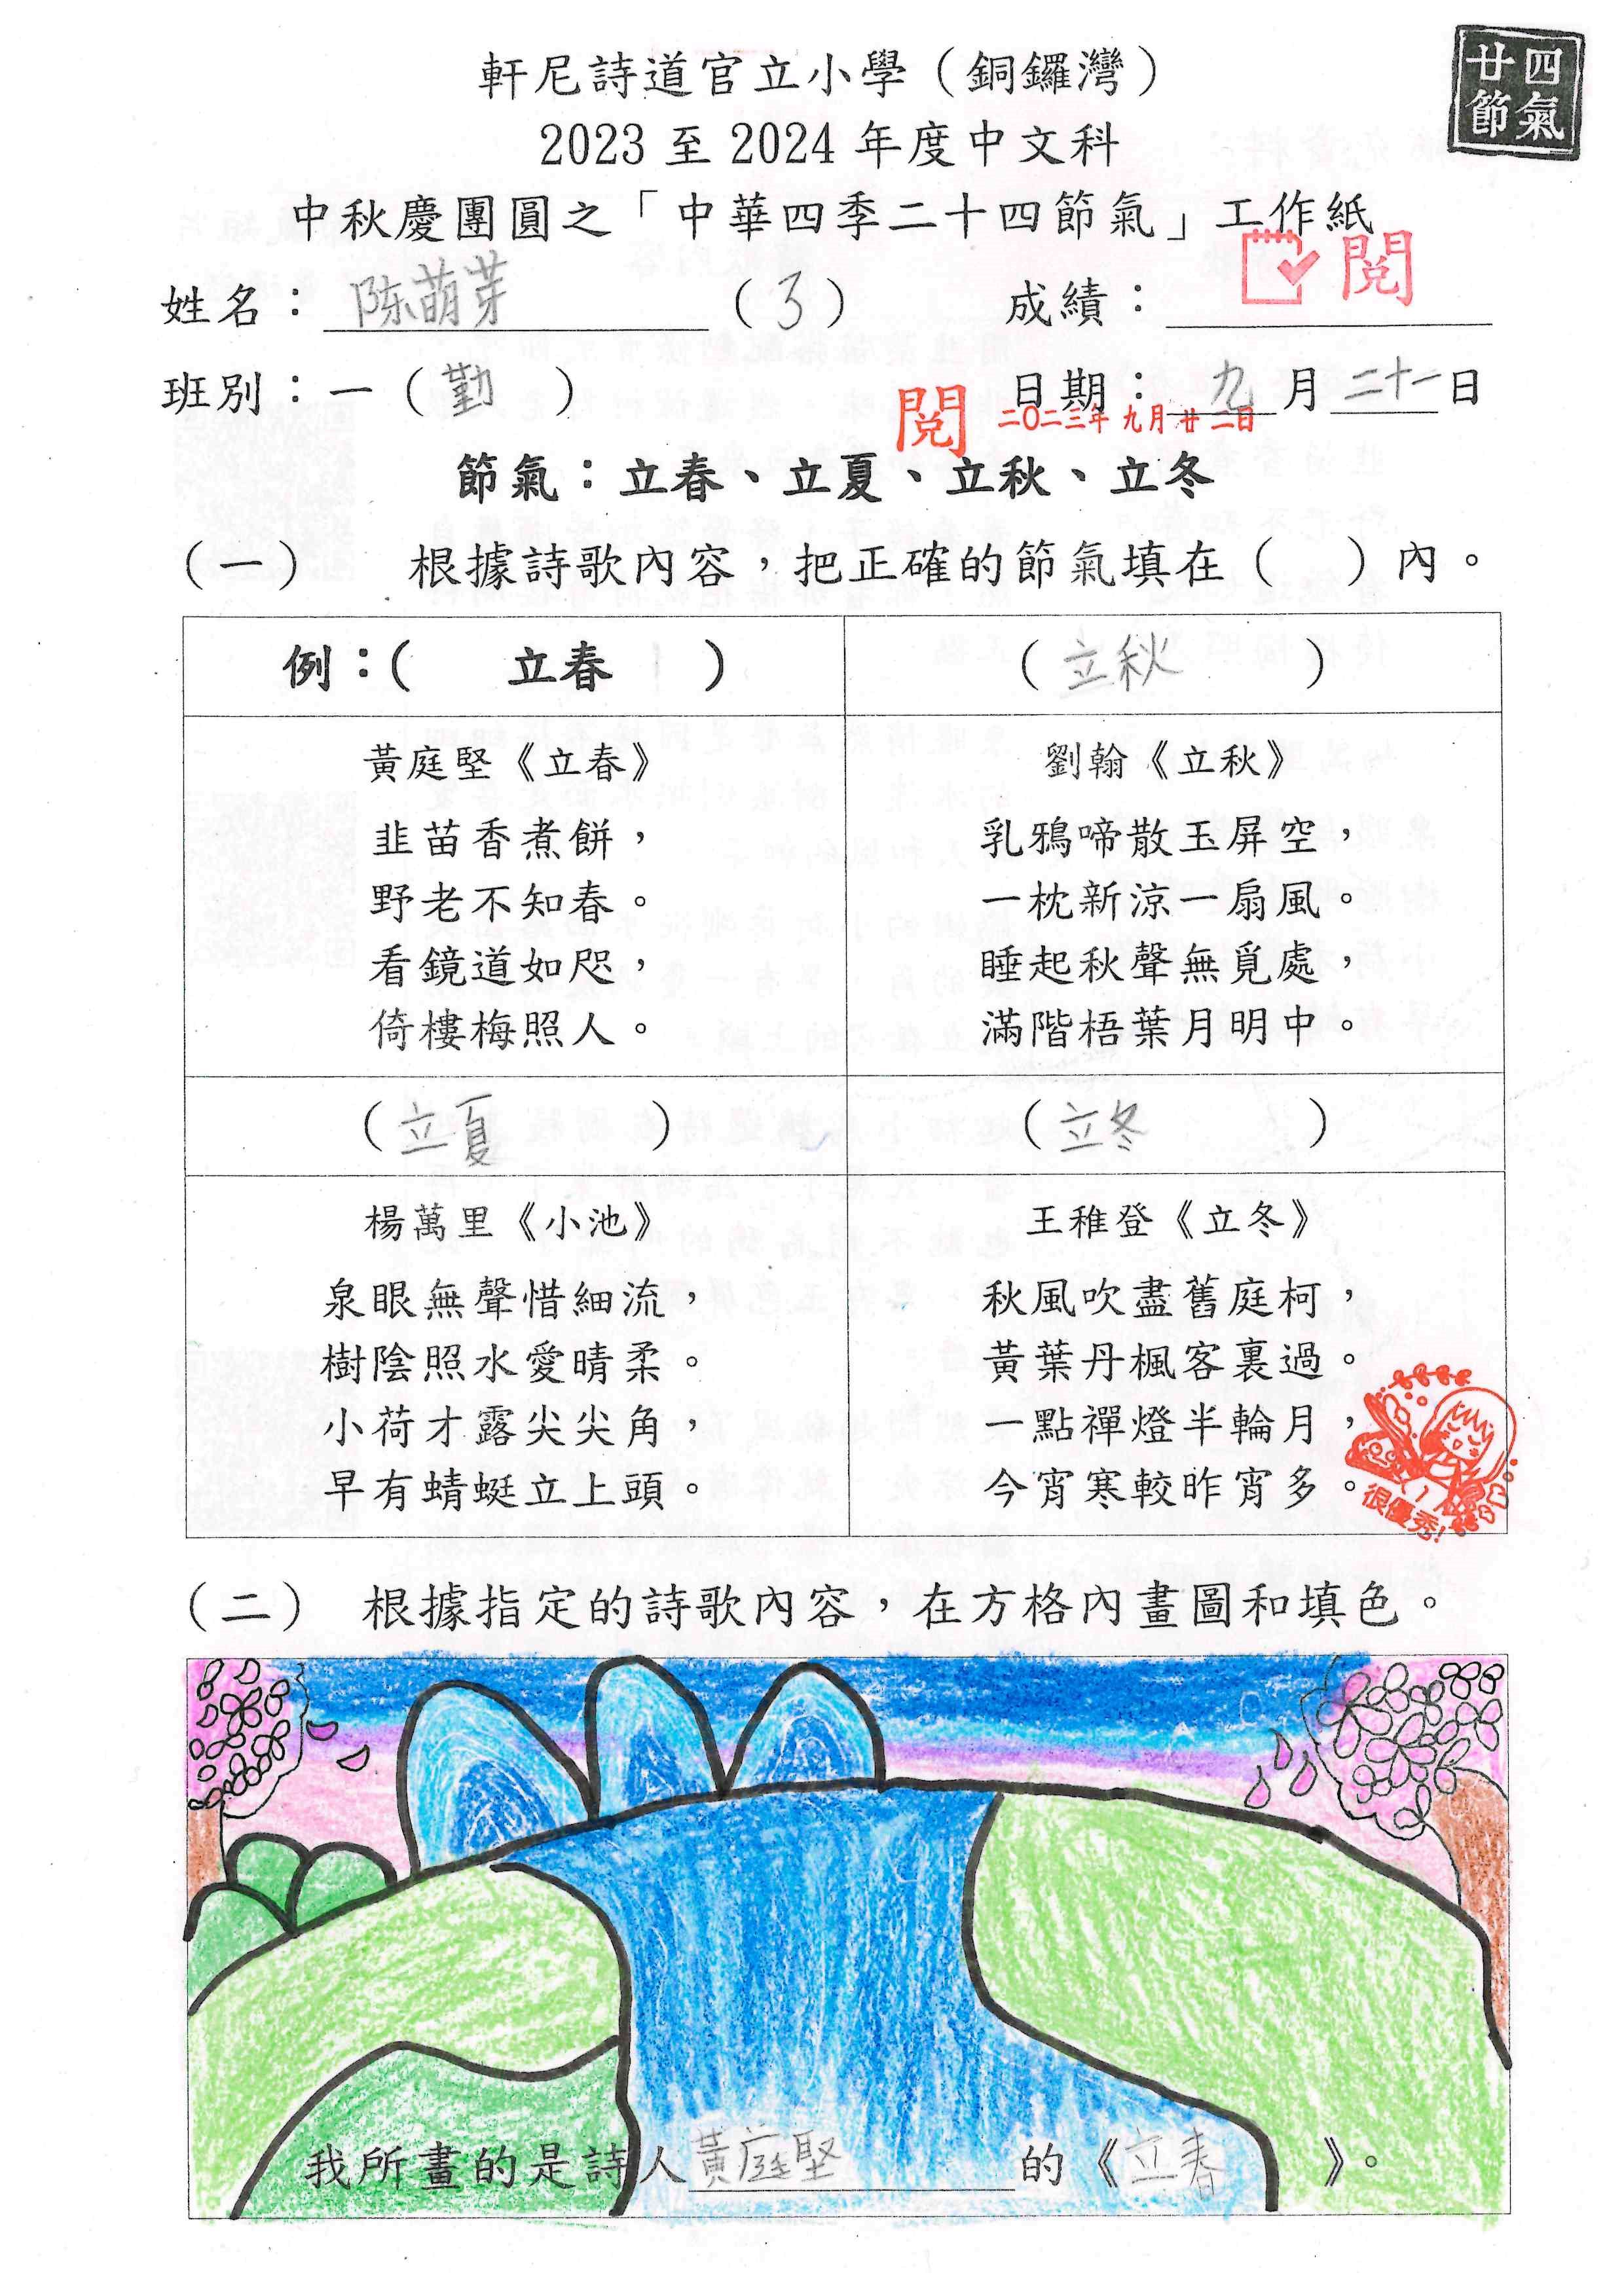 廿四
節氣
軒尼詩道官立小學（銅鑼灣）
2023 至 2024 年度中文科
中秋慶團圓之「中華四季二十四節氣」工作紙
姓名：陈萌芽（3） 成績： 閱
班別：一（勤） 日期：九月二十一日
閱 二〇二三年九月廿二日
節氣：立春、立夏、立秋、立冬
（一） 根據詩歌內容，把正確的節氣填在（ ）內。
例：（ 立春 ）
黃庭堅《立春》
韭苗香煮餅，
野老不知春。
看鏡道如咫，
倚樓梅照人。
（立秋）
劉翰《立秋》
乳鴉啼散玉屏空，
一枕新涼一扇風。
睡起秋聲無覓處，
滿階梧葉月明中。
（立夏）
楊萬里《小池》
泉眼無聲惜細流，
樹陰照水愛晴柔。
小荷才露尖尖角，
早有蜻蜓立上頭。
（立冬）
王稚登《立冬》
秋風吹盡舊庭柯，
黃葉丹楓客裏過。
一點禪燈半輪月，
今宵寒較昨宵多。
很優秀!
（二） 根據指定的詩歌內容，在方格內畫圖和填色。
我所畫的是詩人黃庭堅的《立春》。